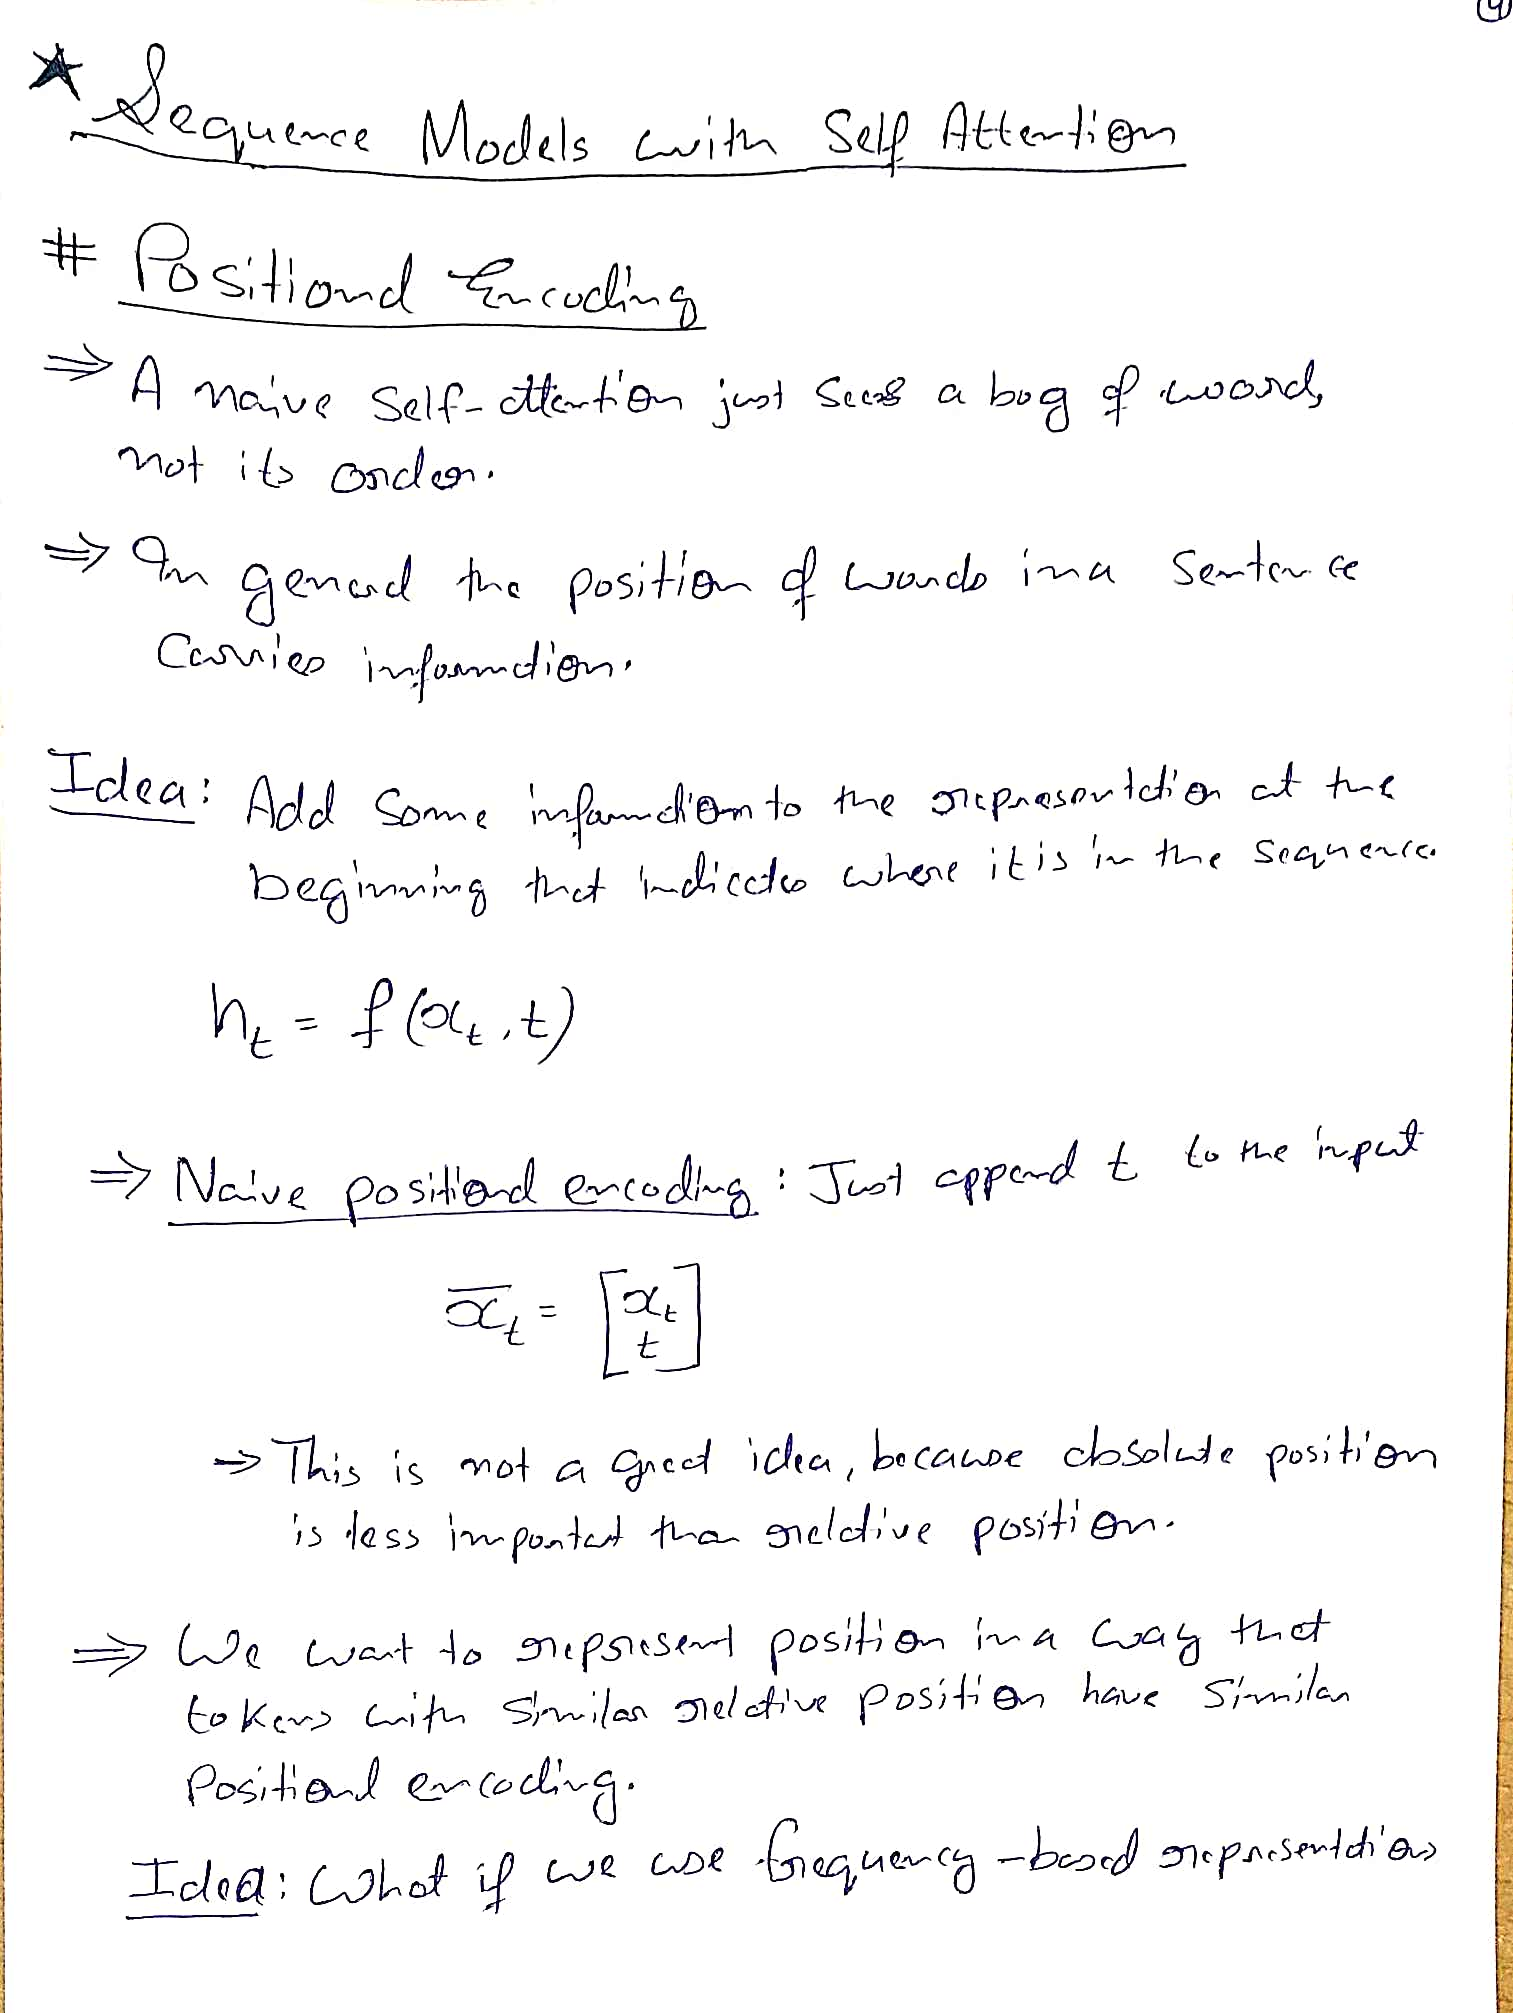 4
* Sequence Models with Self Attention
# Positional Encoding
⇒ A naive Self-attention just sees a bag of words,
not its order.
⇒ In general the position of words in a sentence
carries information.
Idea: Add some information to the representation at the
beginning that indicates where it is in the sequence.
h_t = f(x_t, t)
⇒ Naive positional encoding: Just append t to the input
x̄_t = [x_t
t]
→ This is not a great idea, because absolute position
is less important than relative position.
⇒ We want to represent position in a way that
tokens with similar relative position have similar
Positional encoding.
Idea: What if we use frequency-based representations